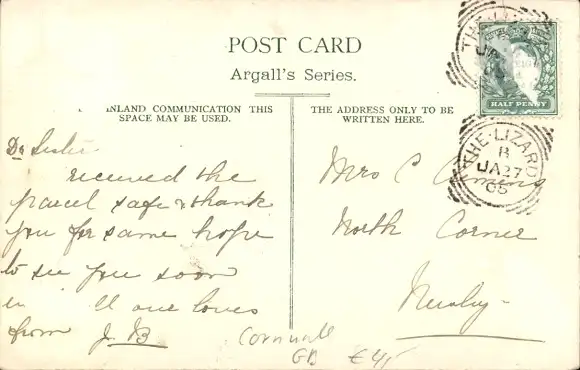 POST CARD
Argall's Series.
INLAND COMMUNICATION THIS
SPACE MAY BE USED.
THE ADDRESS ONLY TO BE
WRITTEN HERE.
HALF PENNY
THE·LIZARD
B
JA 27
05
Dr Sister
received the
parcel safe & thank
you for same hope
to see you soon
all our loves
from J. B
Mrs C
North Corner
Cornwall
GB €4,-